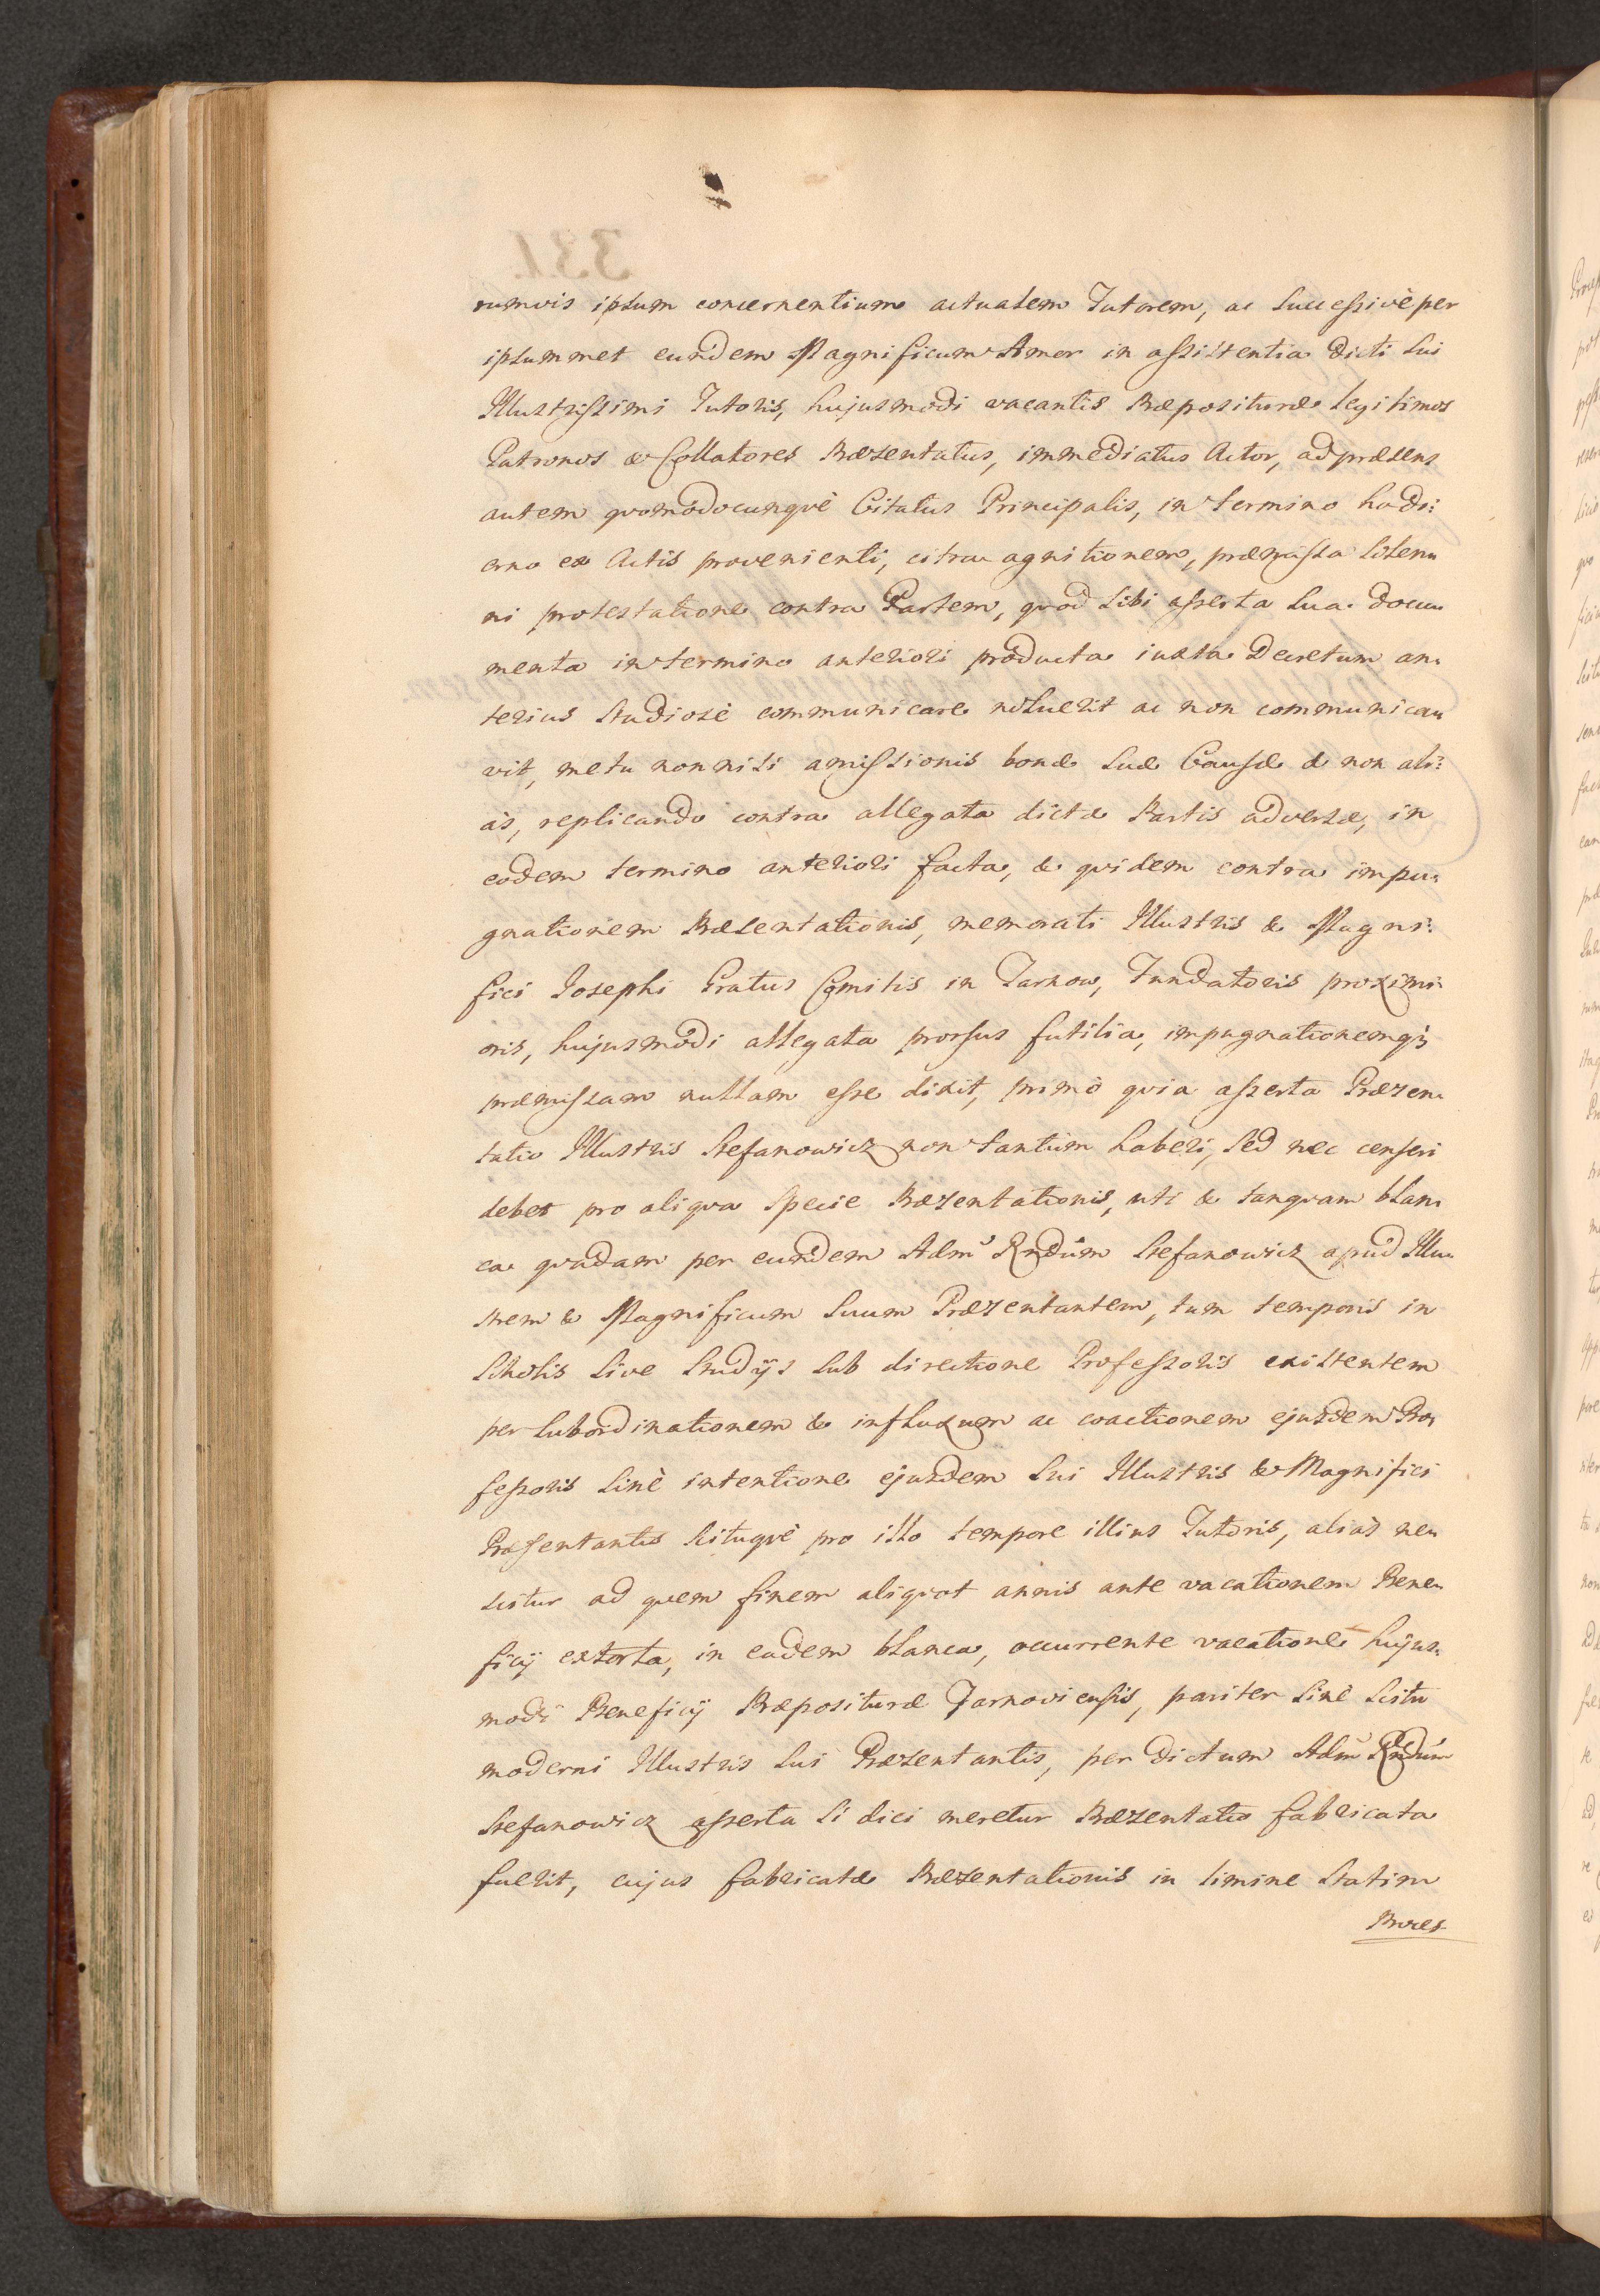 rumvis ipsum concernentium actualem Tutorem, ac successivè per
ipsummet eundem Magnificum Amor in assistentia dicti sui
Illustrissimi Tutoris, hujusmodi vacantis Præposituræ legitimos
Patronos & Collatores Præsentatus, immediatus Actor, ad præsens
autem quomodocunquè Citatus Principalis, in termino hodi:
erno ex Actis provenienti, citra agnitionem, præmissa solem„
ni protestatione contra Partem, quod sibi asserta sua docu„
menta in termino anteriori producta iuxta Decretum an„
terius studiosè communicare noluerit ac non communica„
vit, metu nonnisi amissionis bonæ suæ Causæ & non ali:
às, replicando contra allegata dictæ Partis adversæ, in
eodem termino anteriori facta, & quidem contra impu„
gnationem Præsentationis, memorati Illustris & Magni:
fici Josephi Gratus Comitis in Tarnow, Fundatoris proximi„
oris, hujusmodi allegata prorsus futilia, impugnationemq3
præmissam nullam esse dixit, primò quia asserta Præsen„
tatio Illustris Stefanowicz non tantùm haberi, sed nec censeri
debet pro aliqua specie Præsentationis, uti & tanquam blan„
ca quædam per eundem Adm Rndum Stefanowicz apud Illu„
strem & Magnificum suum Præsentantem, tum temporis in
scholis sive studijs sub directione Professoris existentem
per subordinationem & influxum ac coactionem ejusdem Pro„
fessoris sinè intentione ejusdem sui Illustris & Magnifici
Præsentantis scituquè pro illo tempore illius Tutoris, aliàs ne„
scitur ad quem finem aliquot annis ante vacationem Bene„
ficij extorta, in eadem blanca, occurrente vacatione hujus„
modi Beneficij Præposituræ Tarnoviensis, pariter sinè scitu
moderni Illustris sui Præsentantis, per dictum Adm Rndum
Stefanowicz asserta si dici meretur Præsentatio fabricata
fuerit, cujus fabricatæ Præsentationis in limine statim